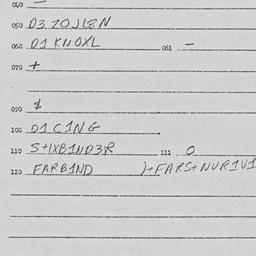 040 —
050 D3 ZOJLEN
060 D1 KNOXL 061 —
070 +
090 $
100 D1C1NG
110 S+IXB1ND3R 111 O
120 FARB1ND )+FARS+NUR1V1